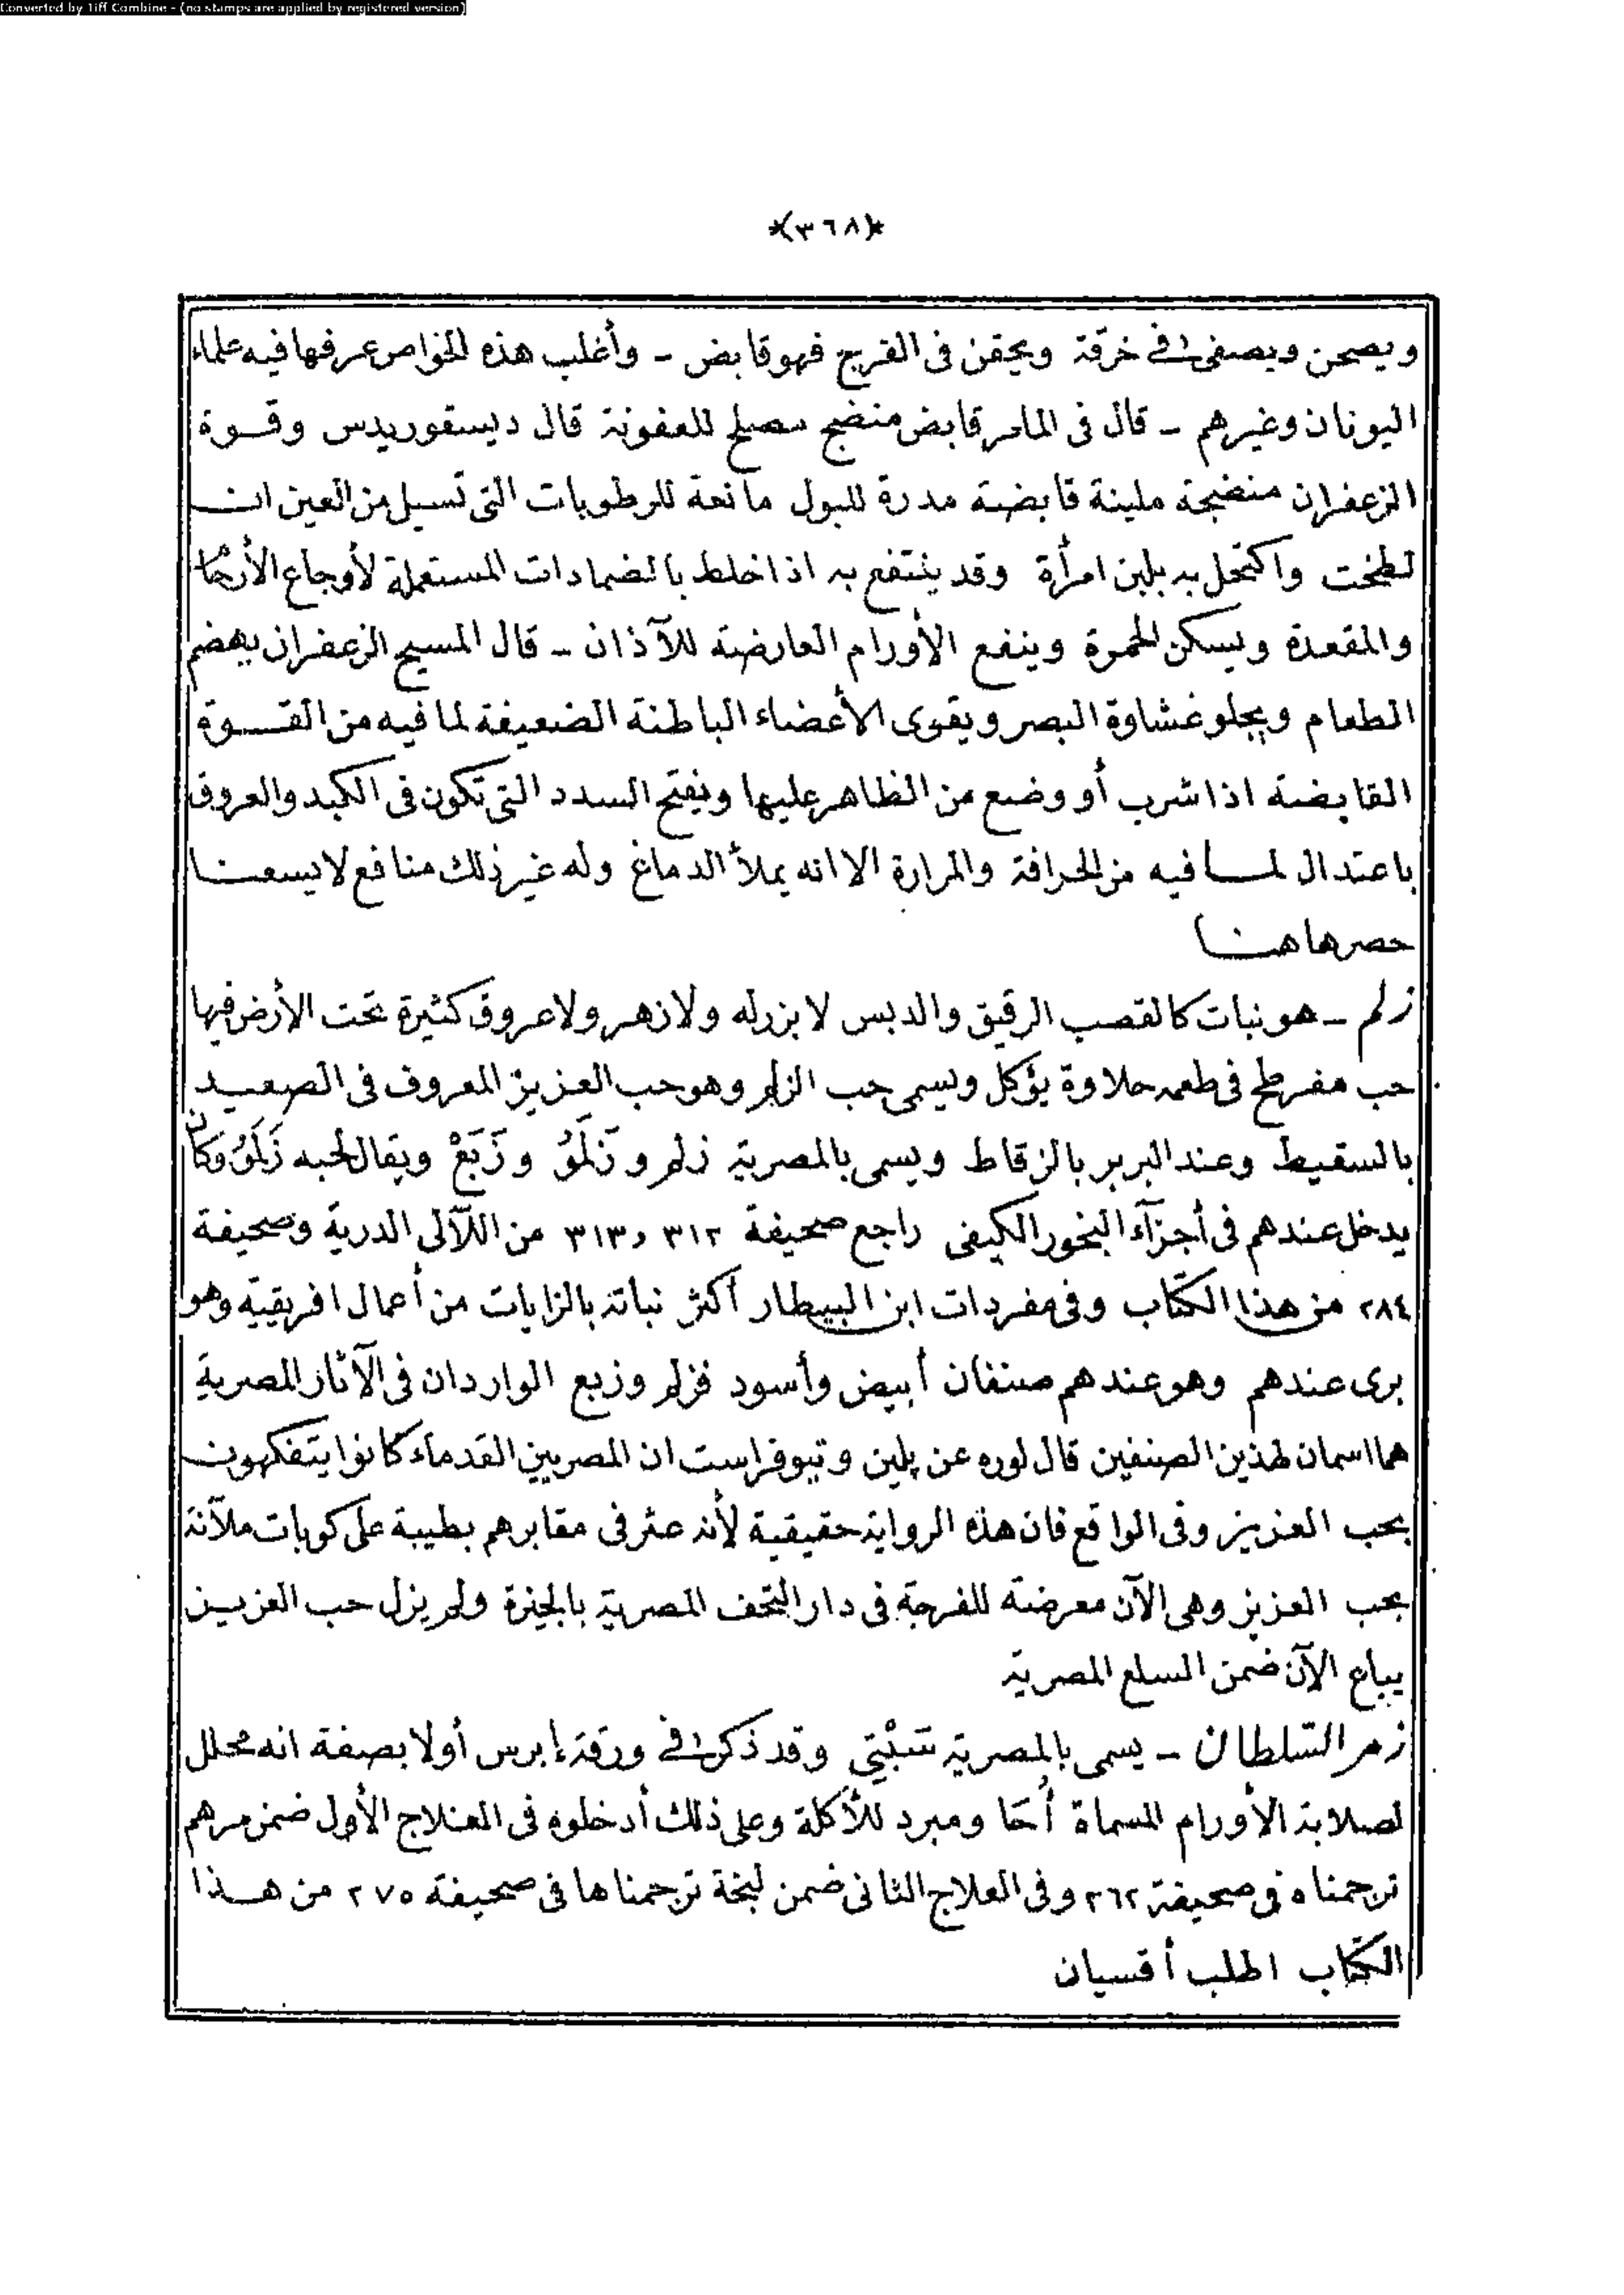 Converted by Tiff Combine - (no stamps are applied by registered version)
*(٣٦٨)*
ويصحن ويصفى في خرقة ويحقن فى الفرج فهو قابض - وأغلب هذه الخواص عرفها فيه علماء
اليونان وغيرهم - قال فى قابض منضج مصلح للعفونة قال ديسقوريدس وقوة
الزعفران منضجة ملينة قابضة مدرة للبول مانعة للرطوبات التى تسيل من العين ان
لطخت واكتحل به بلبن امرأة وقد ينتفع به اذا خلط بالضمادات المستعملة لأوجاع الأرحام
والمقعدة ويسكن الحمرة وينفع الأورام العارضة للآذان - قال المسيح الزعفران يهضم
الطعام ويجلو غشاوة البصر ويقوى الأعضاء الباطنة الضعيفة لما فيه من القوة
القابضة اذا شرب أو وضع من الظاهر عليها ويفتح السدد التى تكون فى الكبد والعروق
باعتدال لما فيه من الحرافة والمرارة الا انه يملأ الدماغ وله غير ذلك منافع لا يسعنا
حصرها هنا
زلم - هو نبات كالقصب الرقيق والدبس لا بزر له ولا زهر ولا عروق كثيرة تحت الأرض فيها
حب مفرطح فى طعمه حلاوة يؤكل ويسمى حب الزلم وهو حب العزيز المعروف فى الصعيد
بالسقيط وعند البربر بالزقاط ويسمى بالمصرية زلم و زَلَمُ و زَبَعْ ويقال لحبه زَلَمُ وكان
يدخل عندهم فى أجزآء البخور الكيفى راجع صحيفة ٣١٢ و ٣١٣ من اللآلى الدرية وصحيفة
٢٨٤ من هذا الكتاب وفى مفردات ابن البيطار أكثر نباته بالزابات من أعمال افريقية وهو
برى عندهم وهو عندهم صنفان أبيض وأسود فزلم وزبع الواردان فى الآثار المصرية
هما اسمان لهذين الصنفين قال لوره عن پلين وتيوفراست ان المصريين القدماء كانوا يتفكهون
بحب العزيز وفى الواقع فان هذه الرواية حقيقية لأنه عثر فى مقابرهم بطيبة على كوبات ملآنة
بحب العزيز وهى الآن معرضة للفرجة فى دار التحف المصرية بالجيزة ولم يزل حب العزيز
يباع الآن ضمن السلع المصرية
زمر السلطان - يسمى بالمصرية شَبْتِي وقد ذكر في ورقة إبرس أولا بصفة انه محلل
لصلابة الأورام المسماة أُحَا ومبرد للأكلة وعلى ذلك أدخلوه فى العلاج الأول ضمن مرهم
ترجمناه فى صحيفة ٢٦٢ وفى العلاج الثانى ضمن لبخة ترجمناها فى صحيفة ٢٧٥ من هذا
الكتاب اطلب أقسيان